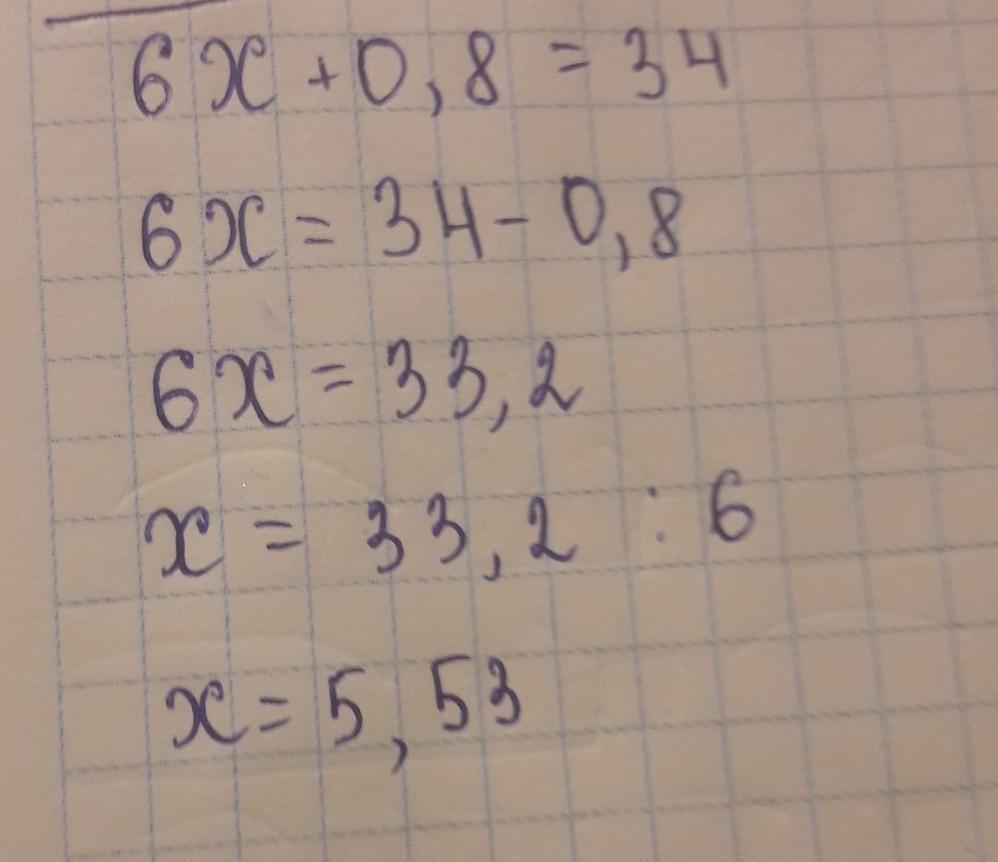 6x + 0,8 = 34
6x = 34 - 0,8
6x = 33,2
x = 33,2 : 6
x = 5,53